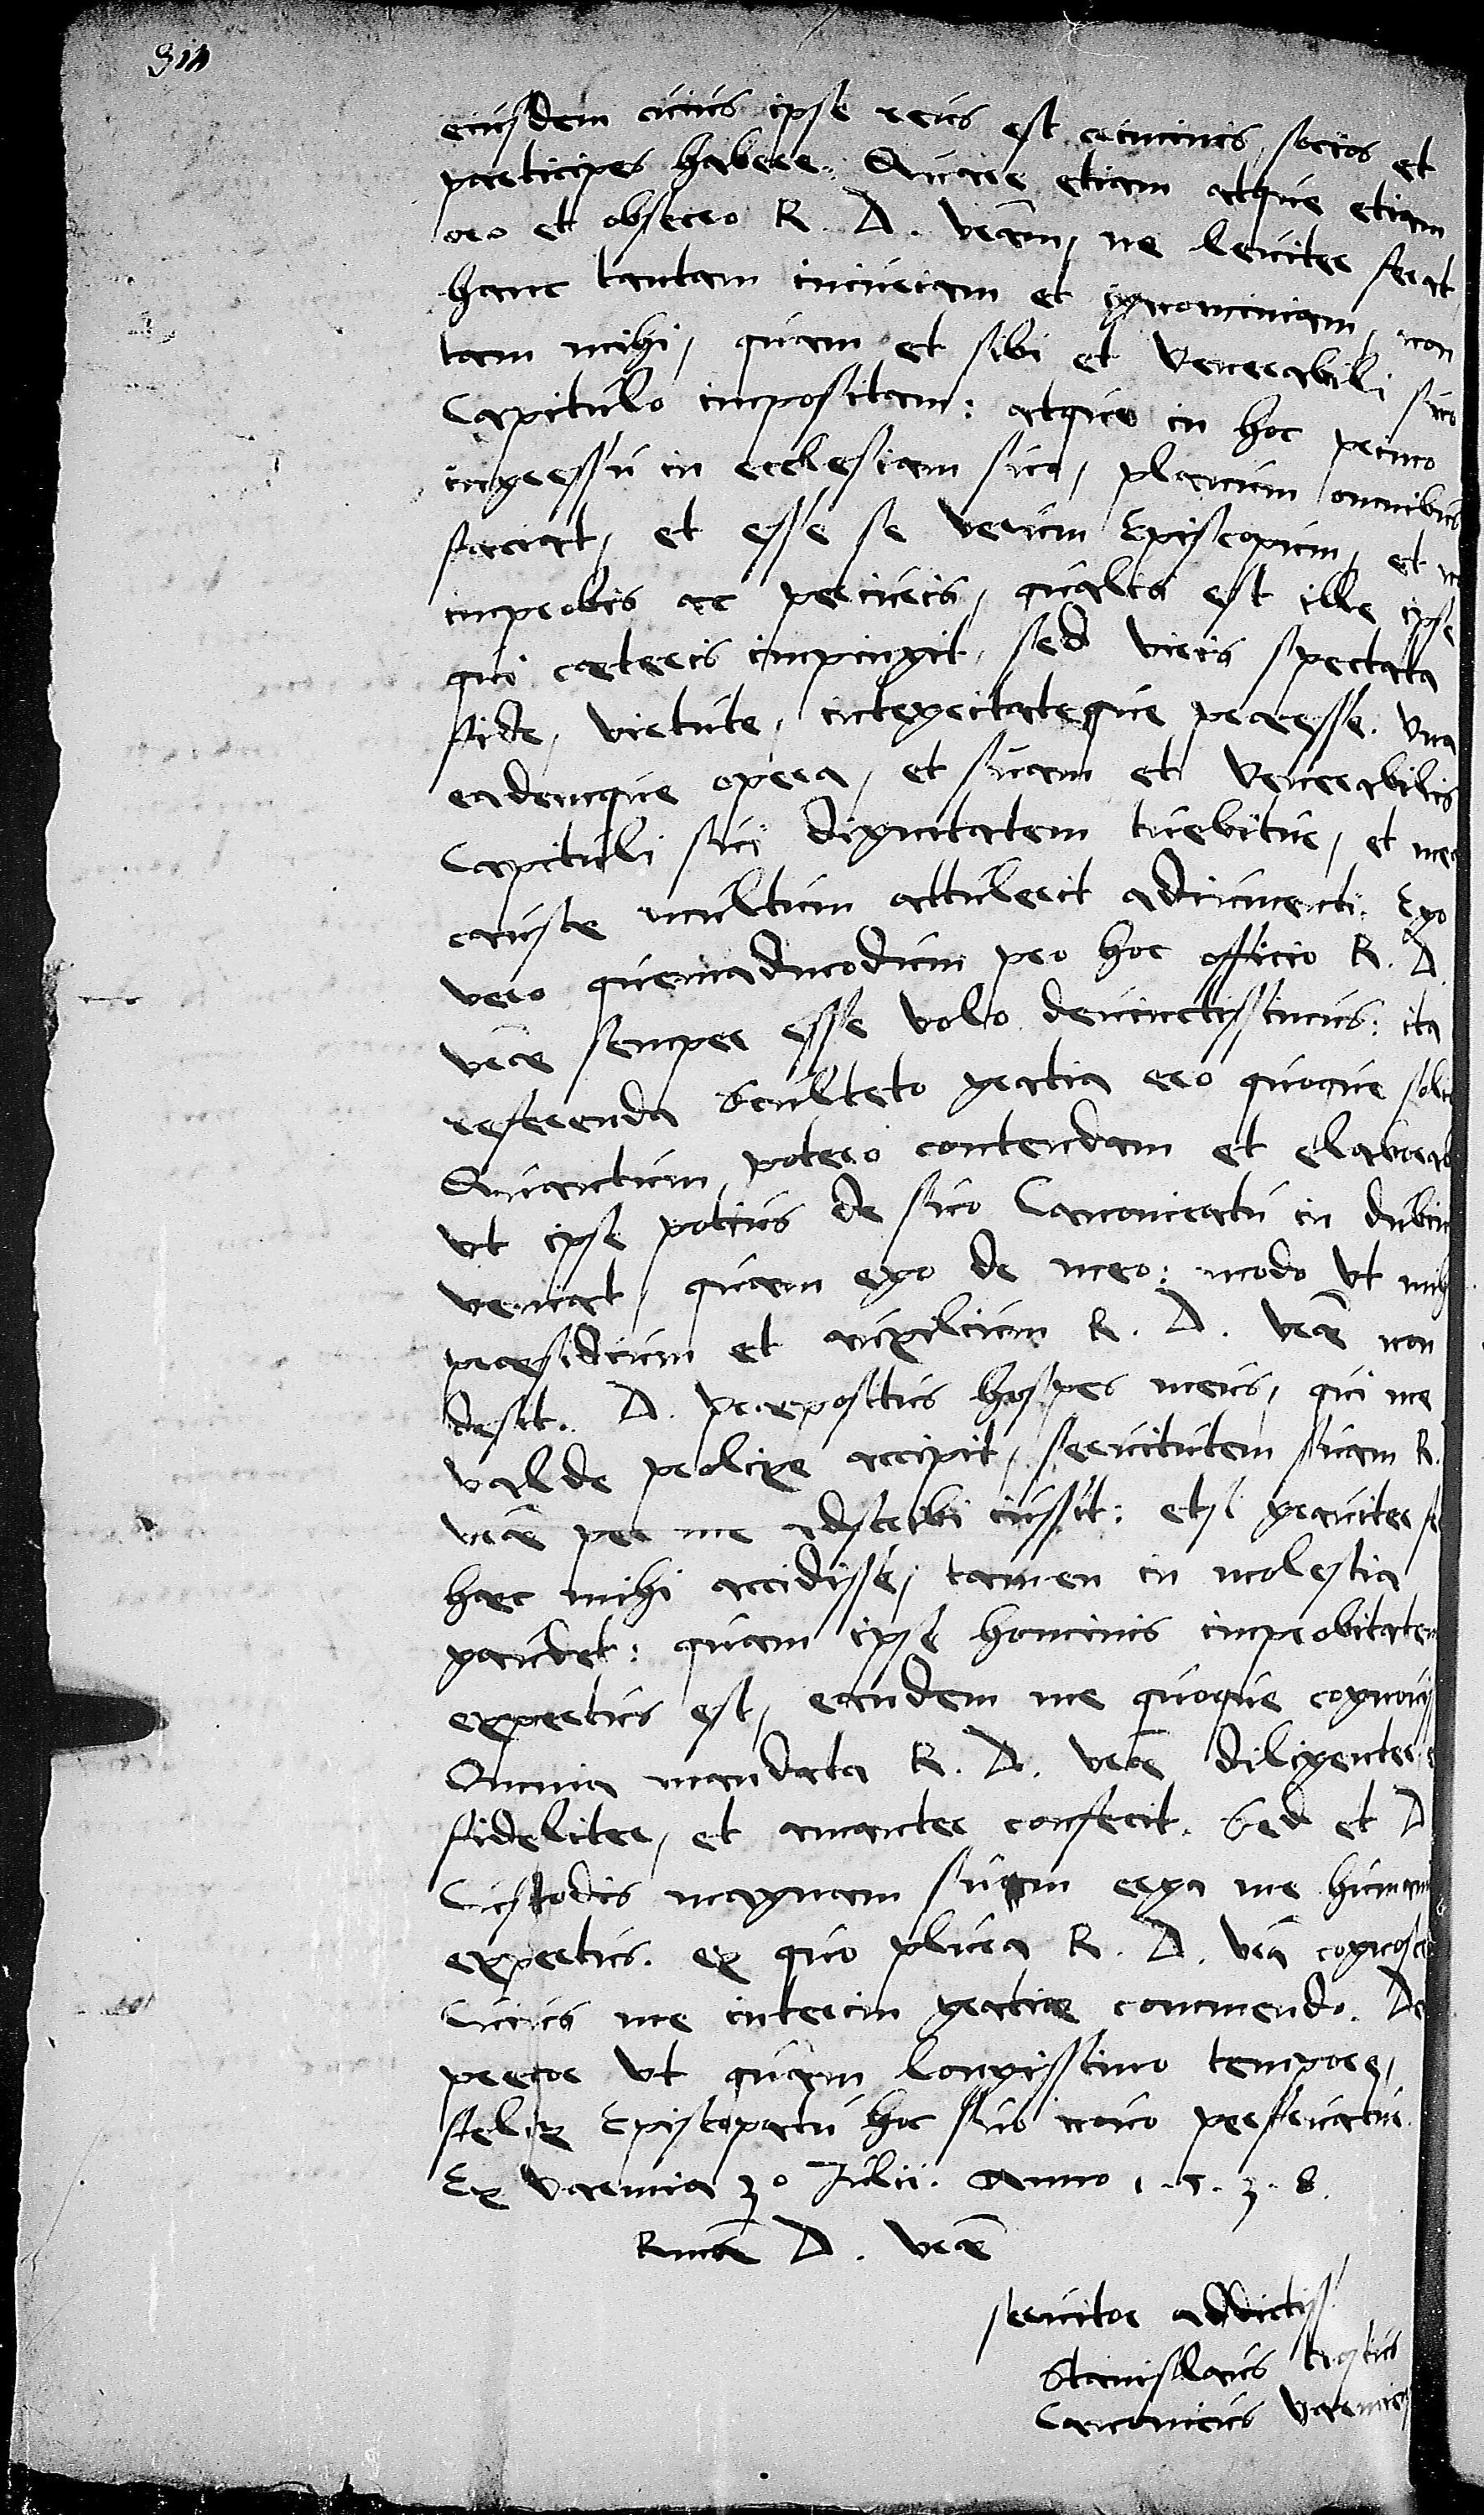 314
eiusdem cuius ipse reus est criminis, socios et
participes habere. Quare etiam atque etiam
oro et obsecro R. D. vram, ne leviter ferat
hanc tantam iniuriam et ignominiam, non
tam mihi, quam et sibi et Venerabili suo
Capitulo impositam: atque in hoc primo
ingressu in ecclesiam suo, planum omnibus
faciat, et esse se verum Episcopum, et no
improbis ac periuris, qualia est ille ipse
qui caeteris impingit, sed viris spectata
fide, virtute, integritateque praeesse. Una
eademque opera, et suam et Venerabilis
Capituli sui dignitatem tuebitur, et meae
causae multum attulerit adiumenti. Ego
vero quemadmodum pro hoc officio R. D.
vrae semper esse volo devinctissimus: ita
referenda Sculteto gratia ero quoque
Quantum potero contendam et elaborab
ut ipse potius de suo Canonicatu in dubiu
veniat, quam ego de meo: modo ut mihi
praesidium et auxilium R. D. vrae non
desit. D. praepositus hospes meus, qui me
valde prolixe accipit, servitutem suam R.
vrae per me adscribi iussit: etsi graviter
haec mihi accidisse, tamen in molestia
gaudet: quam ipse hominis improbitatem
expertus est, eandem me quoque cognovis
Omnia mandata R. D. vrae diligenter
fideliter, et amanter confecit. Sed et D
Custodis magnam suam erga me humani
expertus. ex quo plura R. D. vra cognosc
Cuius me interim gratiae commendo. De
precor ut quam longissimo tempore,
felix Episcopatu hoc suo novo perfruatur.
Ex Varmia 30 Julii. Anno 1.5.3.8.
Rmae D. vrae
servitor addictiss
Stanislaus Hosius
Canonicus Varmien